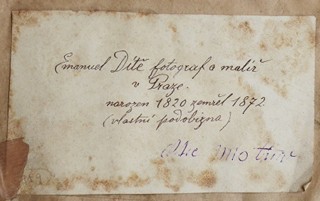 Emanuel Dítě fotograf a malíř
v Praze.
narozen 1820 zemřel 1872
(vlastní podobizna)